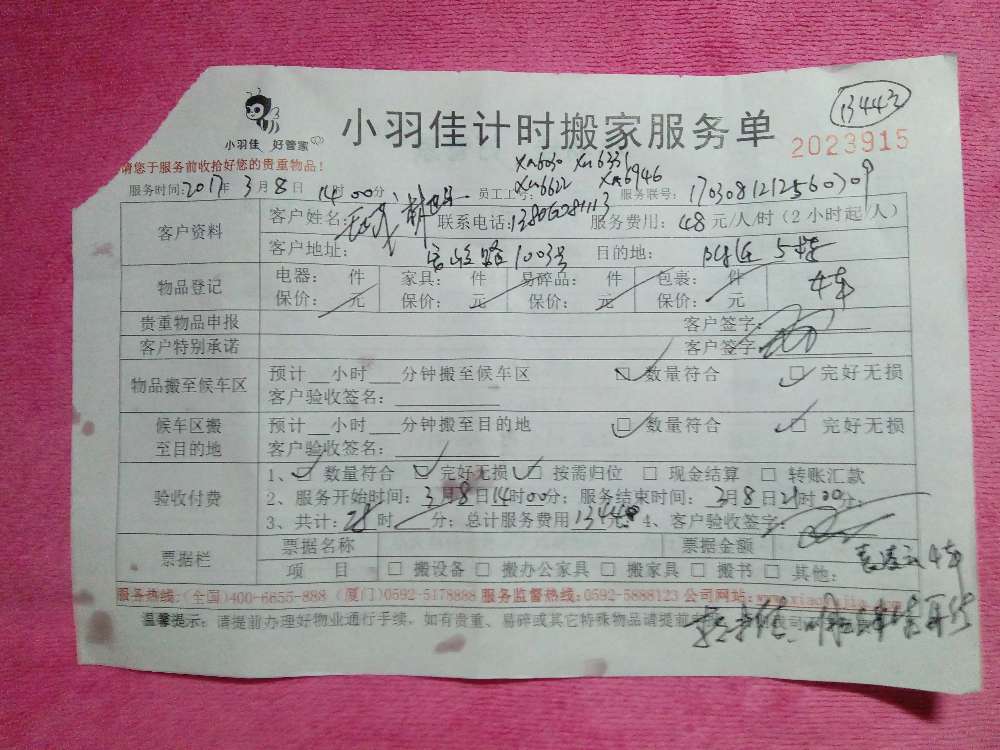 小羽佳 好管家
小羽佳计时搬家服务单
13443
2023915
请您于服务前收拾好您的贵重物品!
Xm6030 Xm6336
Xm6622 Xm6946
服务时间:2017年 3月8日 14时00分 员工工号: 服务联号: 1703081212560309
客户资料
客户姓名: 联系电话:13806081113 服务费用: 48元/人/时(2小时起/人)
客户地址: 路1003号 目的地: 5楼
物品登记
电器: 件 家具: 件 易碎品: 件 包裹: 件 4车
保价: 元 保价: 元 保价: 元 保价: 元
贵重物品申报 客户签字:
客户特别承诺 客户签字:
物品搬至候车区
预计__小时___分钟搬至候车区 □ 数量符合 □ 完好无损
客户验收签名:
候车区搬至目的地
预计__小时___分钟搬至目的地 □ 数量符合 □ 完好无损
客户验收签名:
验收付费
1、□ 数量符合 □ 完好无损 □ 按需归位 □ 现金结算 □ 转账汇款
2、服务开始时间: 3月8日14时00分; 服务结束时间: 3月8日21时00分;
3、共计:28时 分; 总计服务费用1344元 4、客户验收签字:
票据栏
票据名称 票据金额
项 目 □ 搬设备 □ 搬办公家具 □ 搬家具 □ 搬书 □ 其他:
服务热线:(全国)400-6655-888 (厦门)0592-5178888 服务监督热线:0592-5888123 公司网站:
温馨提示: 请提前办理好物业通行手续, 如有贵重、易碎或其它特殊物品请提前